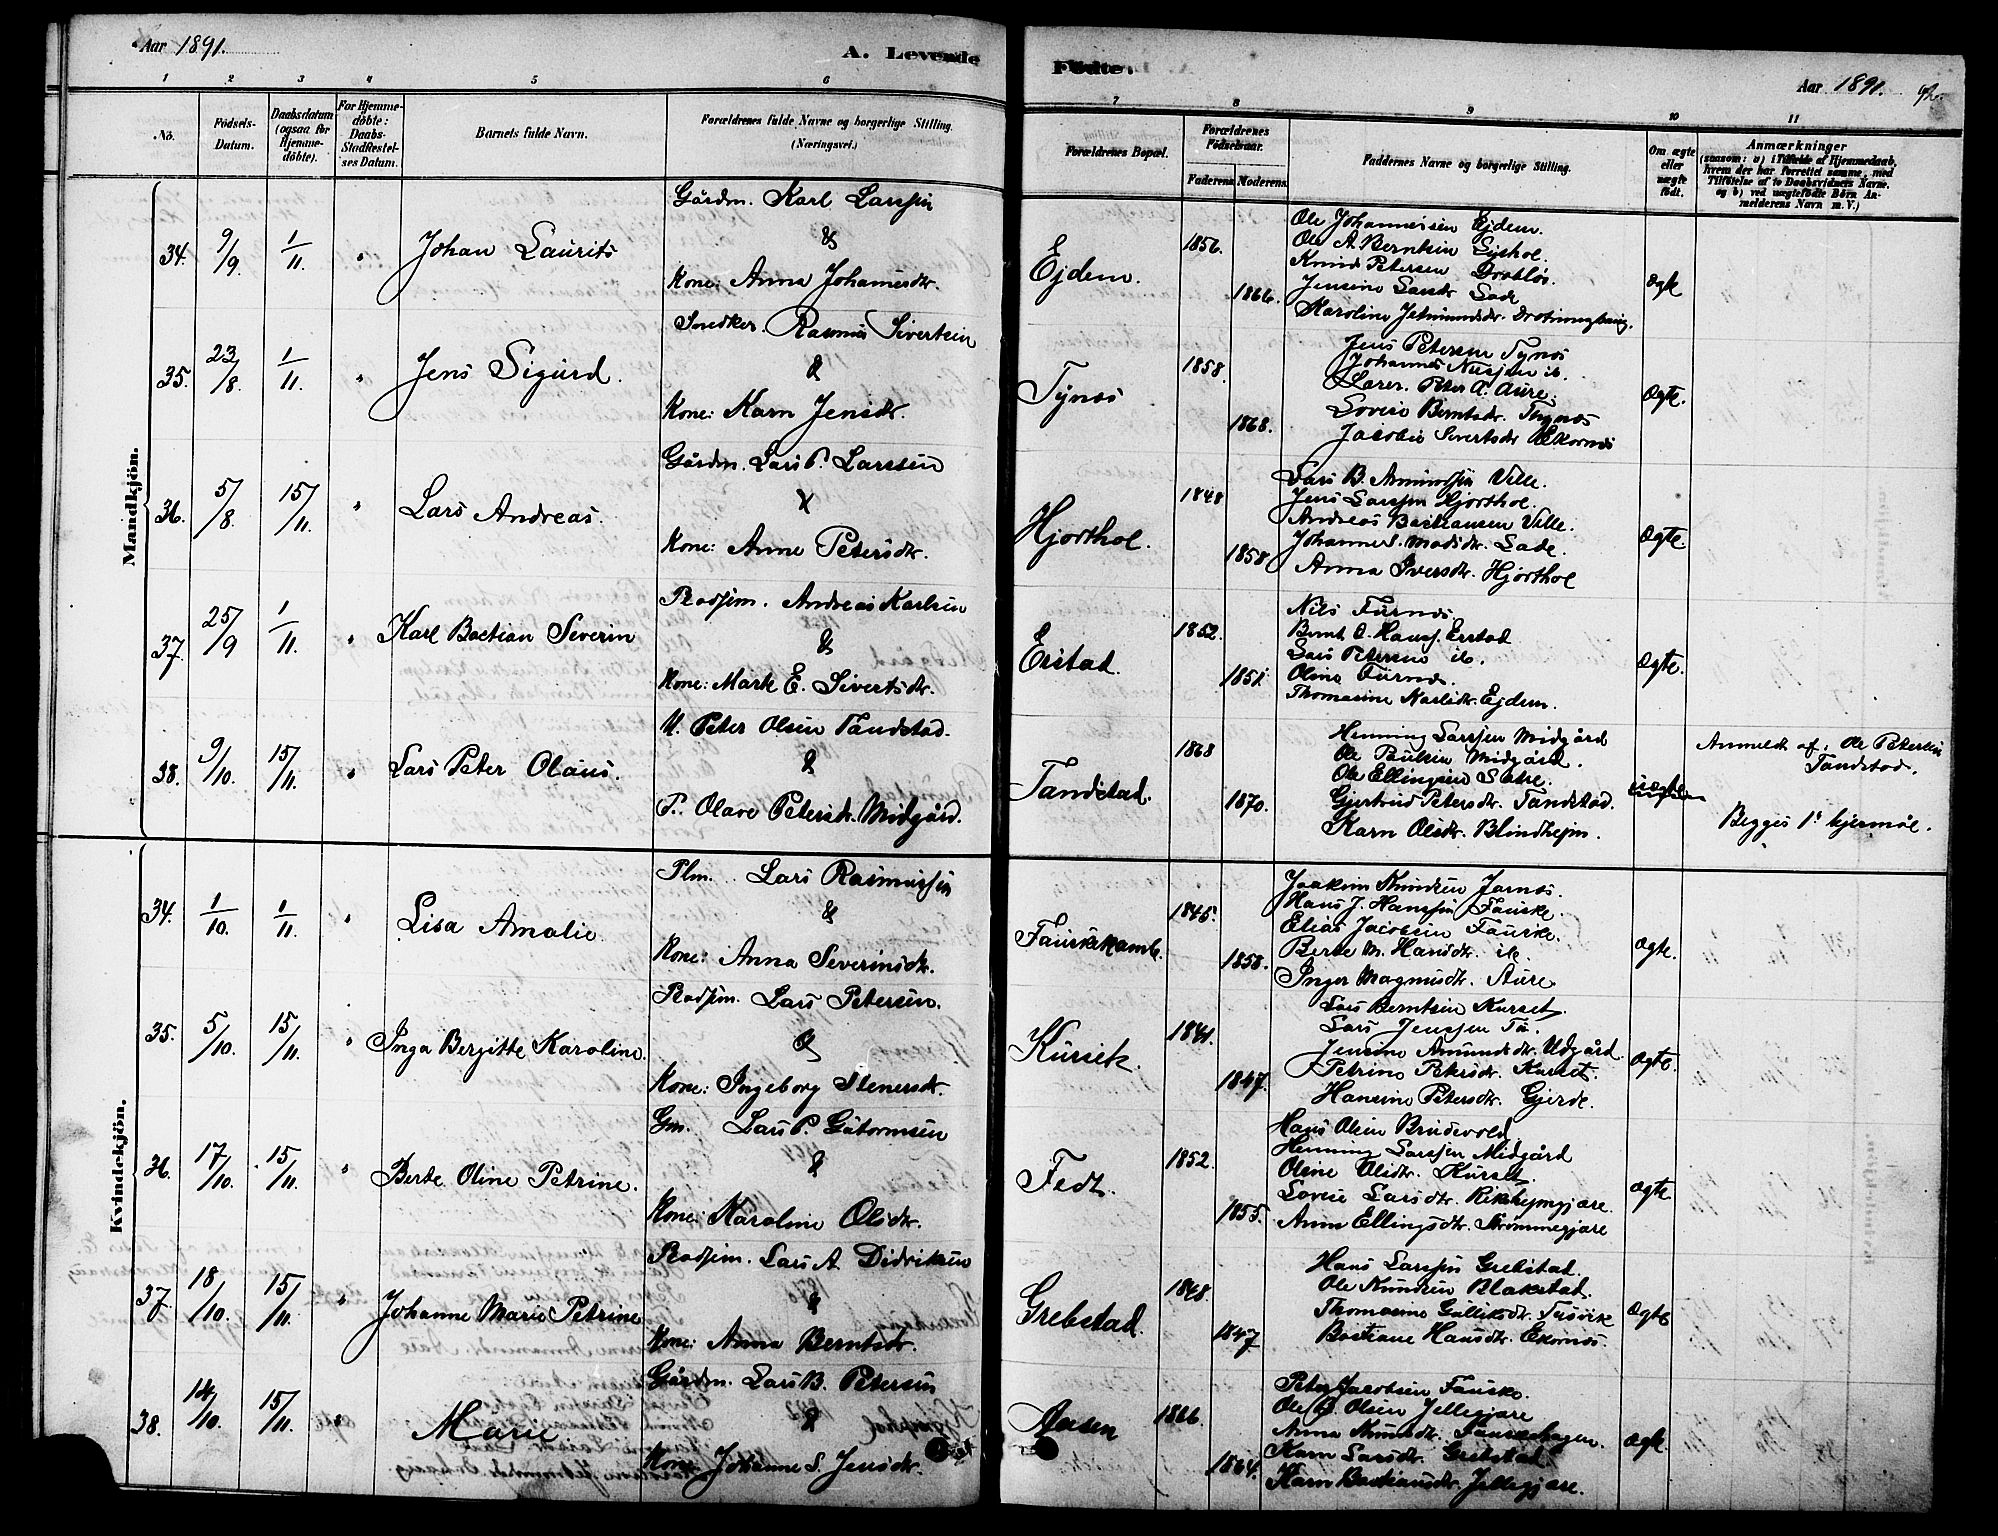 Aar 1891.
A. Levende
Födte.
Aar 1891.
92.
1 2 3 4 5 6
7 8 9 10 11
No. Födsels-Datum. Daabsdatum (ogsaa för Hjemme-döbte). For Hjemme-döbte: Daabs-Stadfæstel-ses Datum. Barnets fulde Navn. Forældrenes fulde Navne og borgerlige Stilling. (Næringsvei.)
Forældrenes Bopæl. Forældrenes Födselsaar. Faderens. Moderens. Faddernes Navne og borgerlige Stilling. Om ægte eller uægte födt. Anmærkninger (saasom: a) i Tilfælde af Hjemmedaab, hvem der har forrettet samme, med Tilföielse af to Daabsvidners Navne, og b) ved uægtefödte Börn Anmelderens Navn m.V.)
Mandkjön.
34. 9/9 1/11. " Johan Laurits
Gårdm. Karl Larssen
&
Kone: Anna Johansdtr.
Ejdem. 1856. 1866.
Ole Johannessen Ejdem.
Ole A. Berntsen
Knud Petersen Drabløs.
Jensine Larsdtr. Lade
Karoline Jetmundsdtr. Drotninghaug.
ægte
35. 23/8. 1/11. " Jens Sigurd.
Snedker. Rasmus Sivertsen
&
Kone: Karn Jensdtr.
Tynæs 1858. 1868.
Jens Petersen Tynæs
Johannes
Lærer. Peter A. Aure.
Lovise Berntsdtr. Thynæs
Jacobie Sivertsdtr Ekornæs
ægte.
36. 5/8 15/11. " Lars Andreas.
Gårdm. Lars P. Larssen
&
Kone: Anne Petersdtr.
Hjorthol. 1848 1858
Lars B. Amundsen Velle.
Jens Larssen Hjorthol.
Andreas Bastiansen Velle.
Johanne S. Madsdtr. Lade.
Anna Iversdtr. Hjorthol
ægte.
37. 25/9 1/11. " Karl Bastian Severin
Pladsm. Andreas Karlsen
&
Kone: Marte E. Sivertsdtr.
Erstad. 1852. 1851.
Nils Furnæs.
Bernt O. Hans. Erstad
Lars Petersen ib.
Oline Furnæs.
Thomasine Karlsdtr. Ejdem.
ægte.
38. 9/10. 15/11. " Lars Peter Olaus.
U. Peter Olsen Tandstad.
&
P. Olave Petersdtr. Midgård.
Tandstad. 1868 1870.
Henning Larssen Midgård
Ole Paulsen Midgård.
Ole Ellingsen Satre.
Gjertrud Petersdtr. Tandstad.
Karn Olsdtr. Blindhejm.
uægte
Anmeldt af: Ole Petersen
Tandstad.
Begges 1ste lejermål.
Kvindekjön.
34. 1/10. 1/11. " Lisa Amalie.
Plm. Lars Rasmussen
&
Kone: Anna Severinsdtr.
Fauskekamb. 1845. 1858.
Joakim Knudsen Jarnæs.
Hans J. Hanssen Fauske.
Elias Jacobsen Fauske.
Berte M. Hansdtr. ib.
Inger Magnusdtr. Aure
ægte.
35. 5/10. 15/11. " Inga Bergitte Karoline.
Pladsm. Lars Petersen.
&
Kone: Ingeborg Stenersdtr.
Kurset. 1841. 1847.
Lars Berntsen Kurset.
Lars Jenssen
Jensine Amundsdtr. Udgård.
Petrine Petersdtr. Kurset.
Hansine Petersdtr. Gjerde.
ægte.
36. 17/10. 15/11. " Berte Oline Petrine.
Gm. Lars P. Guttormsen
&
Kone: Karoline Olsdtr.
Fedt. 1852. 1855.
Hans Olsen Brudevold
Henning Larssen Midgård
Oline Olsdtr. Kurset.
Lovise Larsdtr. Rikshejmgjære.
Anne Ellingsdtr. Strømmegjære
ægte
37. 18/10. 15/11. " Johanne Marie Petrine
Pladsm. Lars A. Didriksen
&
Kone: Anna Berntsdtr.
Grebstad. 1848. 1847
Hans Larssen Grebstad.
Ole Knudsen Blakstad.
Thomasine Gulliksdtr. Tusvik
Bastiane Hansdtr. Ekornæs.
ægte
38. 14/10. 15/11. " Marie.
Gårdm. Lars B. Petersen
&
Kone: Johanne S. Jensdtr.
Aursen 1866. 1864.
Peter Jacobsen Fauske.
Ole B. Olsen Jellegjære
Anna Knudsdtr. Fauskehagen.
Karn Larsdtr. Grebstad.
Karn Bastiansdtr. Jellegjære.
ægte